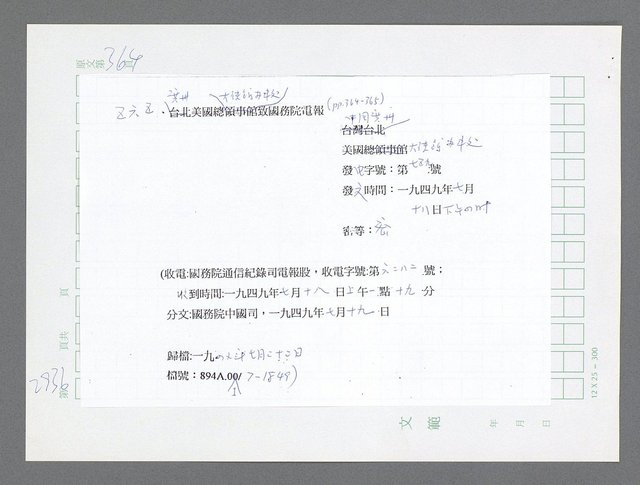 原文第364頁
廣州 大使館辦事處
五六五．台北美國總領事館致國務院電報 (pp.364-365)
中國廣州
台灣台北
美國總領事館 大使館辦事處
發電字號：第 號
發文時間：一九四九年七月
十八日下午四時
密等：密
(收電:國務院通信紀錄司電報股，收電字號:第六二八二號；
收到時間:一九四九年七月十八日上午一點十九分
分文:國務院中國司，一九四九年七月十九日
歸檔:一九四 年七月二十二日
檔號：894A.00/7-1849)
頁
頁共
第2936
12 X 25 = 300
文範
年 月 日